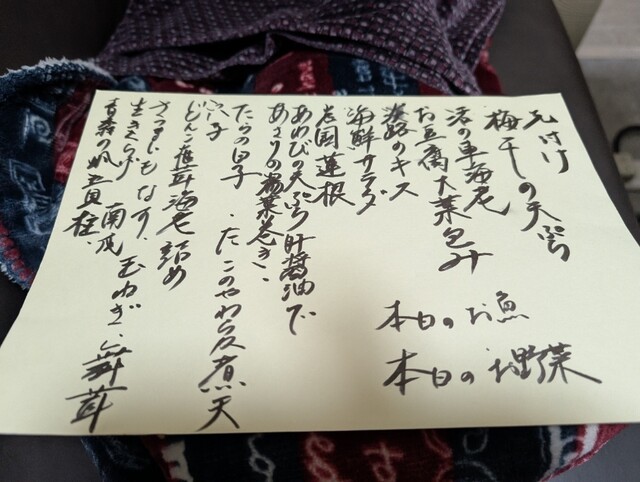 先付け
梅干しの天ぷら
活の車海老
お豆腐大葉包み
淡路のキス
海鮮サラダ
岩国蓮根
あわびの天ぷら肝醤油で
あさりの湯葉巻き、
たらの白子、たこのやわらか煮天
穴子
じんこ椎茸海老詰め
さつまいも なす、
生きくらげ 南瓜 玉ねぎ、舞茸
青森の帆立貝柱、
本日のお魚
本日のお野菜